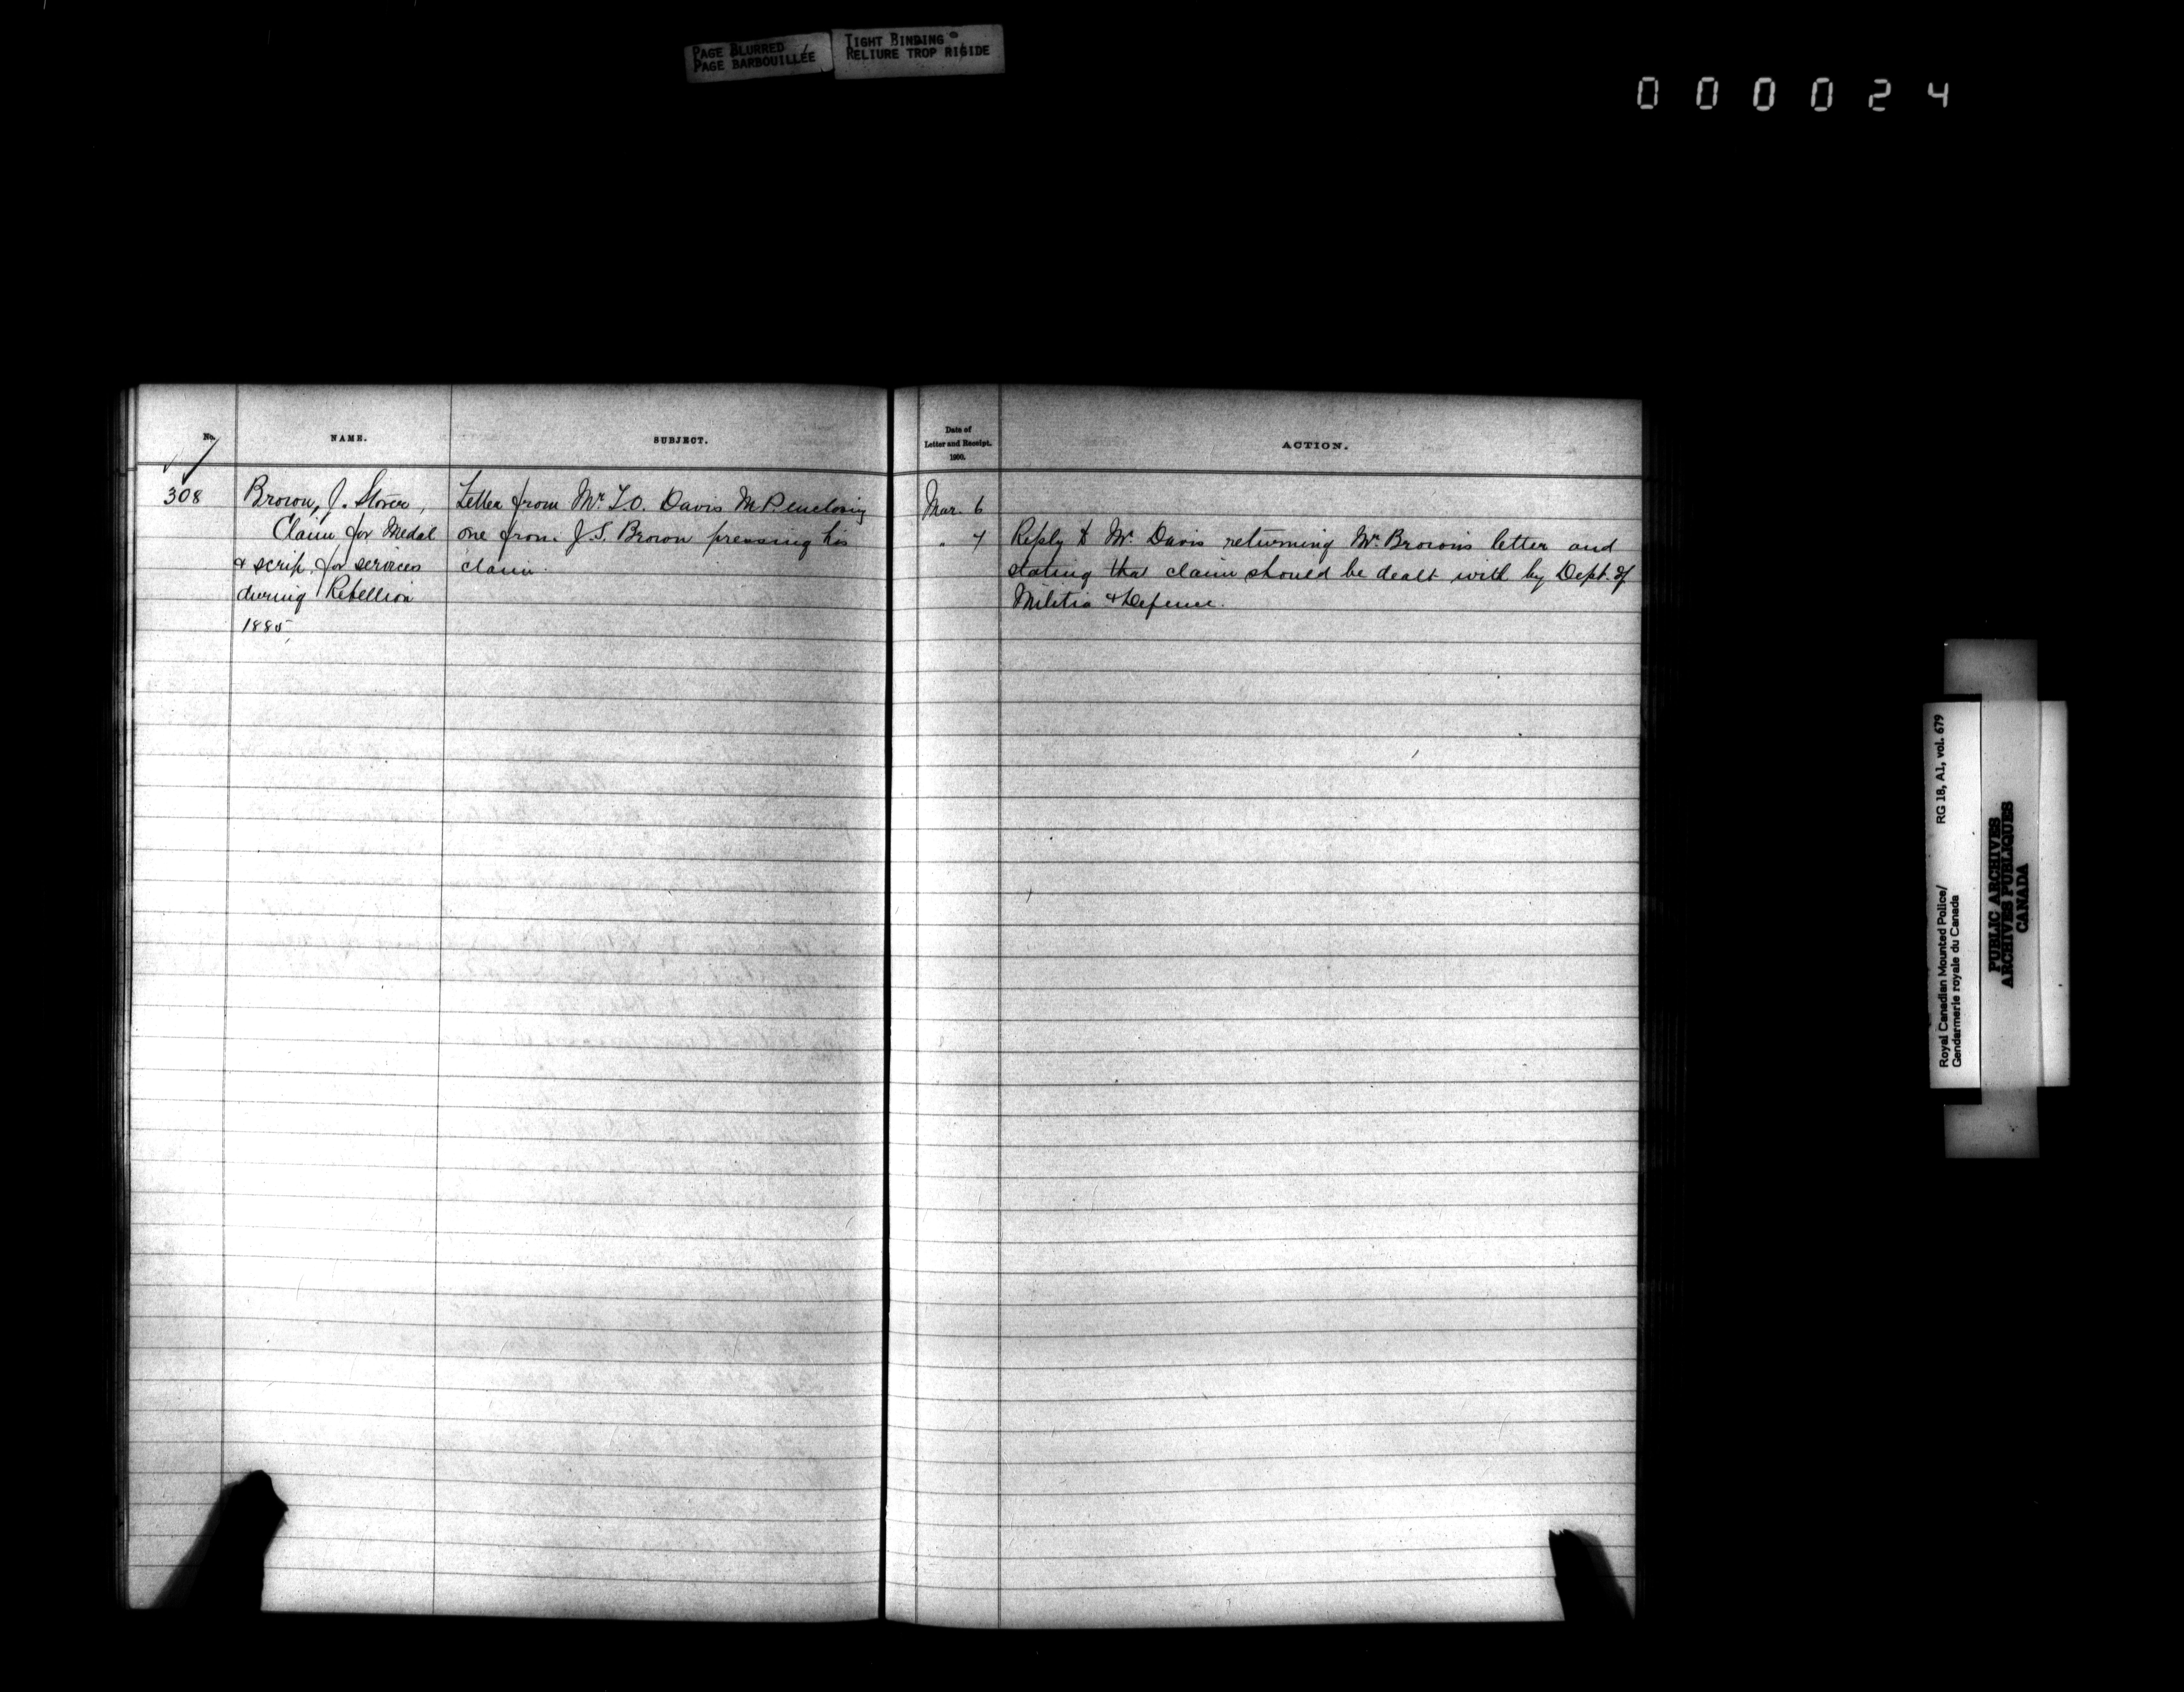 PAGE BLURRED
PAGE BARBOUILLÉE
TIGHT BINDING
RELIURE TROP RIGIDE
000024
No. NAME. SUBJECT. Date of Letter and Receipt. 1900. ACTION.
308 Brown, J. Stover, Letter from Mr. T.O. Davis M.P. enclosing Mar. 6
Claim for Medal one from J.S. Brown pressing his " 7 Reply to Mr. Davis returning Mr. Brown's letter and
& scrip for services claim. stating that claim should be dealt with by Dept. of
during Rebellion Militia & Defence.
1885,
Royal Canadian Mounted Police/ RG 18, A1, vol. 679
Gendarmerie royale du Canada
PUBLIC ARCHIVES
ARCHIVES PUBLIQUES
CANADA